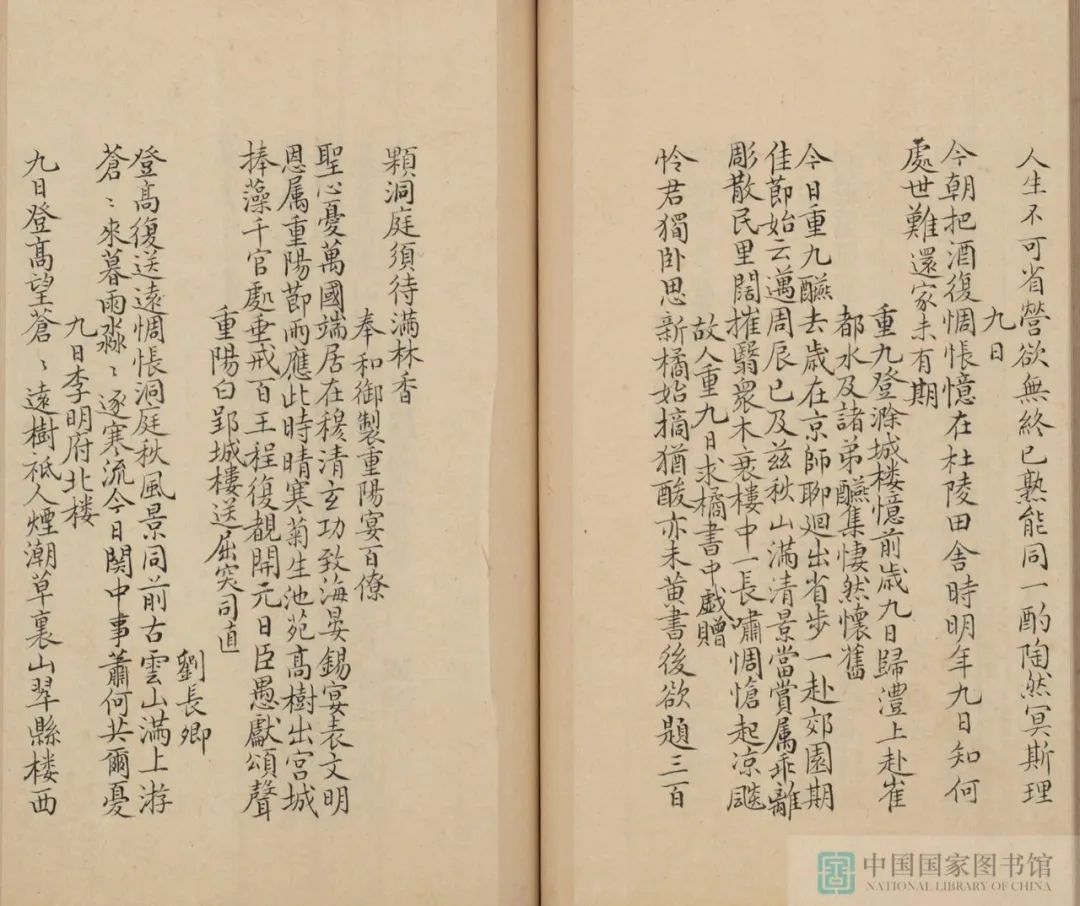 人生不可省營欲無終已熟能同一酌陶然冥斯理
九日
今朝把酒復惆悵憶在杜陵田舍時明年九日知何
處世難還家未有期
重九登滁城楼憶前歳九日歸澧上赴崔
都水及諸弟醼集悽然懷舊
今日重九醼去歳在京師聊迴出省步一赴郊園期
佳節始云邁周辰已及兹秋山滿清景當賞属乖離
彫散民里闊摧翳衆木衰樓中一長嘯惆愴起凉颸
故人重九日求橘書中戲贈
怜君獨卧思新橘始摘猶酸亦未黄書後欲題三百
顆洞庭須待滿林香
奉和御製重陽宴百僚
聖心憂萬國端居在穆清玄功致海晏錫宴表文明
恩属重陽節雨應此時晴寒菊生池苑高樹出宮城
捧藻千官處垂戒百王程復覩開元日臣愚獻頌聲
重陽日郢城樓送屈突司直
劉長卿
登高復送遠惆悵洞庭秋風景同前古雲山滿上游
蒼〻來暮雨淼〻逐寒流今日関中事蕭何共爾憂
九日李明府北楼
九日登高望蒼〻遠樹袛人煙潮草裏山翠縣楼西
中国国家图书馆
NATIONAL LIBRARY OF CHINA